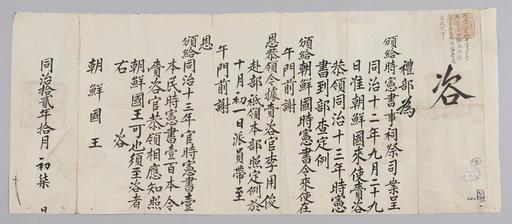 咨
禮部為
頒給時憲書事祠祭司案呈
同治十二年九月二十九
日准朝鮮國來使賫咨
恭領同治十三年時憲
書到部查定例
頒給朝鮮國時憲書令來使在
午門前謝
恩恭領今據賫咨官李用俊
赴部祗領本部照定例於
十月初一日派員帶至
午門前謝
恩
頒給同治十三年官時憲書壹
本民時憲書壹百本令
賫咨官恭領相應知照
朝鮮國王可也須至咨者
右咨
朝鮮國王
同治拾貳年拾月初柒日